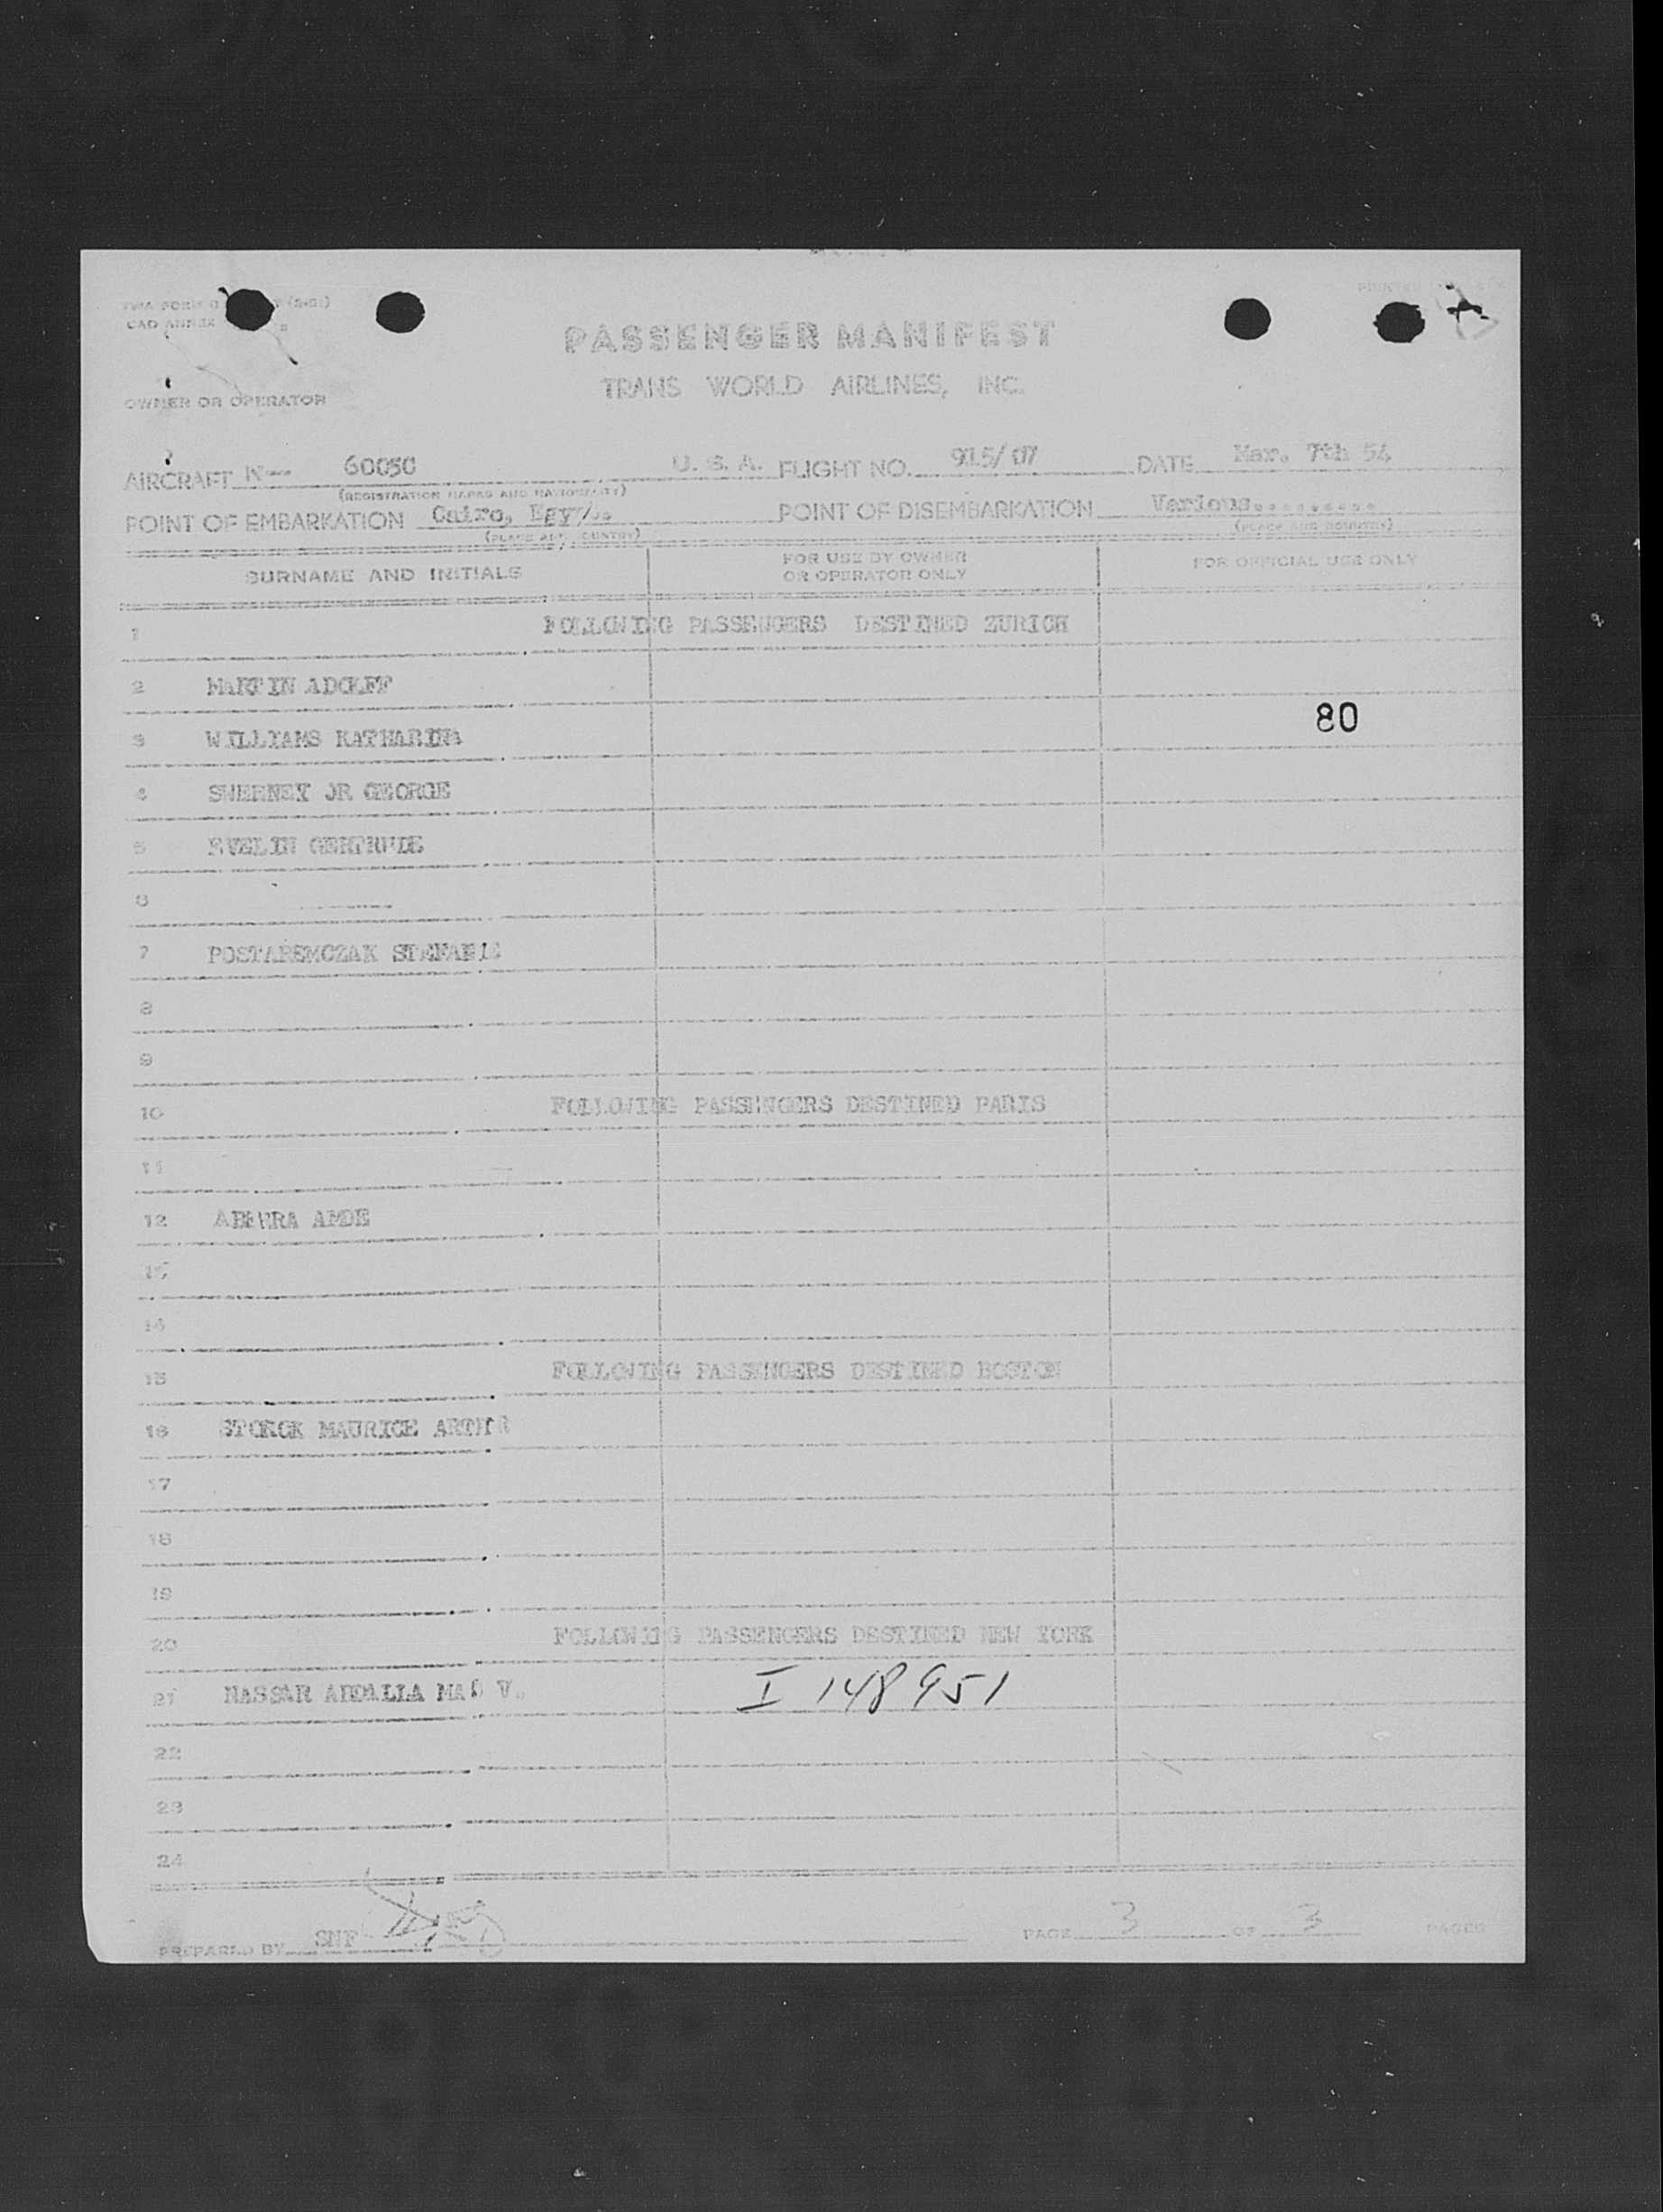 PASSENGER MANIFEST
TRANS WORLD AIRLINES, INC.
OWNER OR OPERATOR
AIRCRAFT N-- 60050 U. S. A. FLIGHT NO. 915/07 DATE Mar. 7th 54
(REGISTRATION MARKS AND NATIONALITY)
POINT OF EMBARKATION Cairo, POINT OF DISEMBARKATION Various.........
(PLACE AND COUNTRY) (PLACE AND COUNTRY)
SURNAME AND INITIALS FOR USE BY OWNER OR OPERATOR ONLY FOR OFFICIAL USE ONLY
1 FOLLOWING PASSENGERS DESTINED ZURICH
2 MARTIN ADOLFF
80
3 WILLIAMS KATHARINA
4 JR GEORGE
5 EVELIN GERTRUDE
6
7
8
9
10 FOLLOWING PASSENGERS DESTINED PARIS
11
12 ABERRA AMDE
13
14
15 FOLLOWING PASSENGERS DESTINED BOSTON
16 STORCK MAURICE ARTHUR
17
18
19
20 FOLLOWING PASSENGERS DESTINED NEW YORK
21 NASSAR ABDALLA V. I 148951
22
23
24
PREPARED BY SNF PAGE 3 OF 3 PAGES